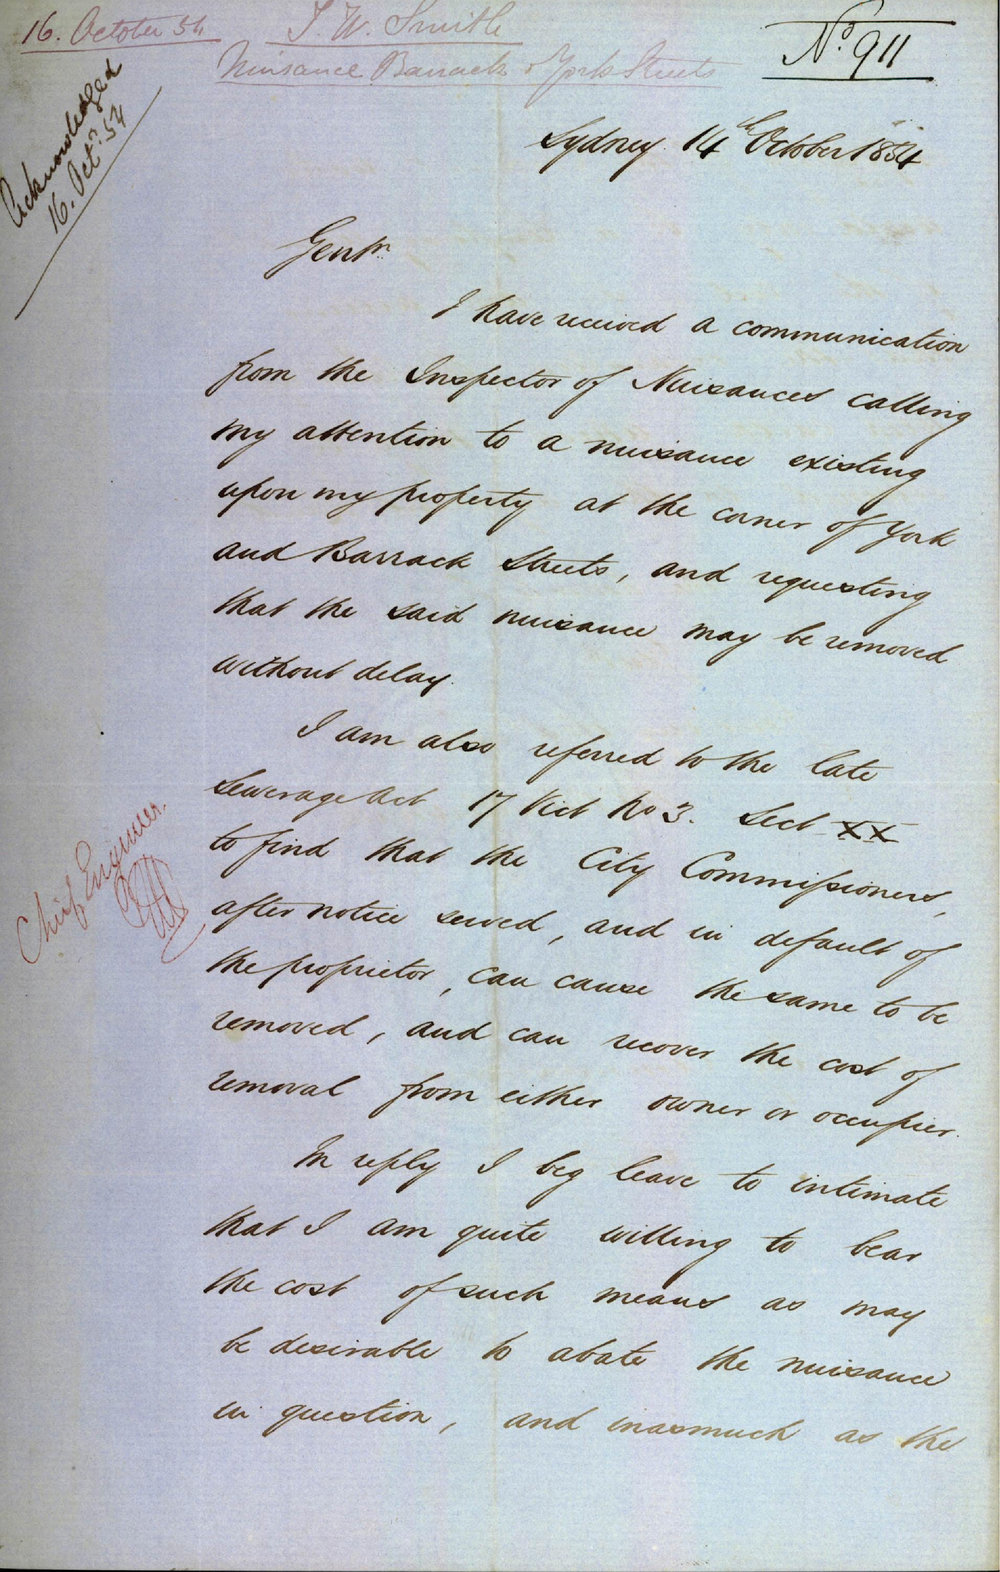 16. October 54
T. W. Smith
Nuisance Barrack & York Streets
No. 911
Acknowledged
16. Oct. 54
Sydney 14th October 1854
Gentn
I have received a communication
from the Inspector of Nuisances calling
my attention to a nuisance existing
upon my property at the corner of York
and Barrack Streets, and requesting
that the said nuisance may be removed
without delay.
I am also referred to the late
Sewerage Act 17 Vict No 3. Sect XX
to find that the City Commissioners,
after notice served, and in default of
the proprietor, can cause the same to be
removed, and can recover the cost of
removal from either owner or occupier.
Chief Engineer.
In reply I beg leave to intimate
that I am quite willing to bear
the cost of such means as may
be desirable to abate the nuisance
in question, and inasmuch as the